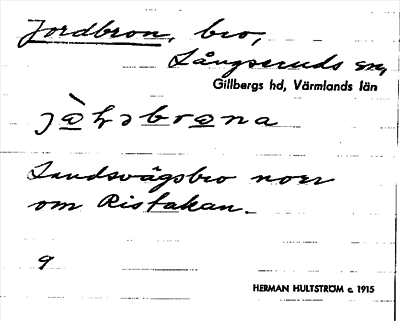 Jordbron, bro,
Långseruds sn,
Gillbergs hd, Värmlands län
Landsvägsbro norr
om Ristakan.
9
HERMAN HULTSTRÖM c. 1915